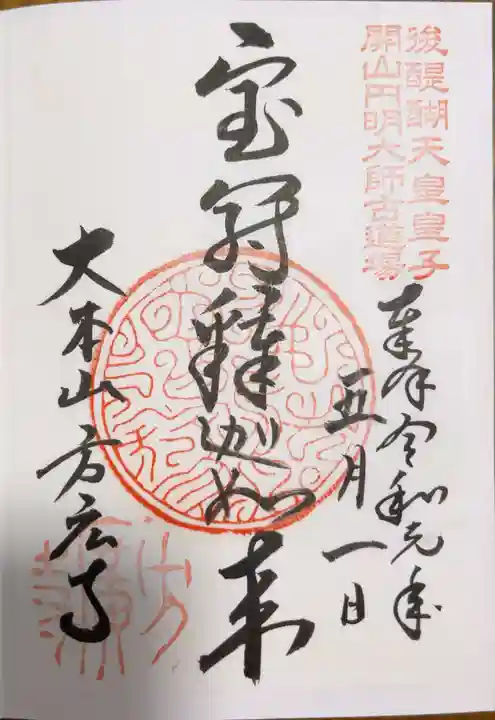 後醍醐天皇皇子
開山円明大師古道場
奉拝令和元年
五月一日
宝冠釋迦如来
大本山方広寺